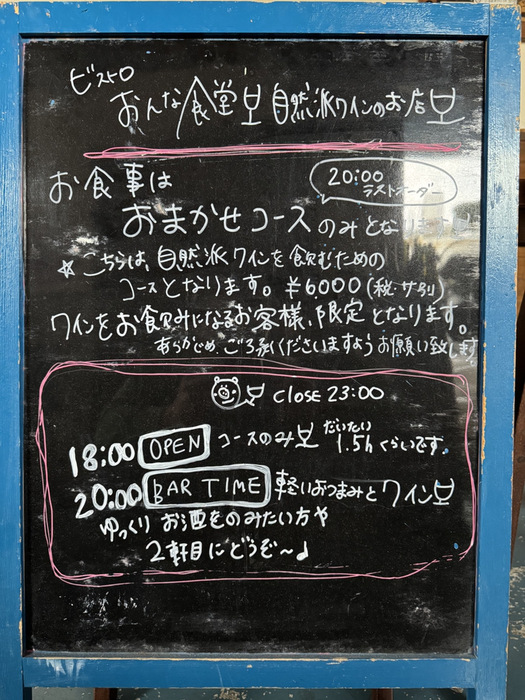 ビストロ
おんな食堂 自然派ワインのお店
20:00
ラストオーダー
お食事は
おまかせコースのみとなります
☆こちらは、自然派ワインを飲むための
コースとなります。¥6,000(税・サ別)
ワインをお飲みになるお客様、限定となります。
あらかじめ、ご了承くださいますようお願い致します
close 23:00
18:00 OPEN コースのみ だいたい
1.5hくらいです。
20:00 BAR TIME 軽いおつまみとワイン
ゆっくり お酒をのみたい方や
2軒目にどうぞ〜♩